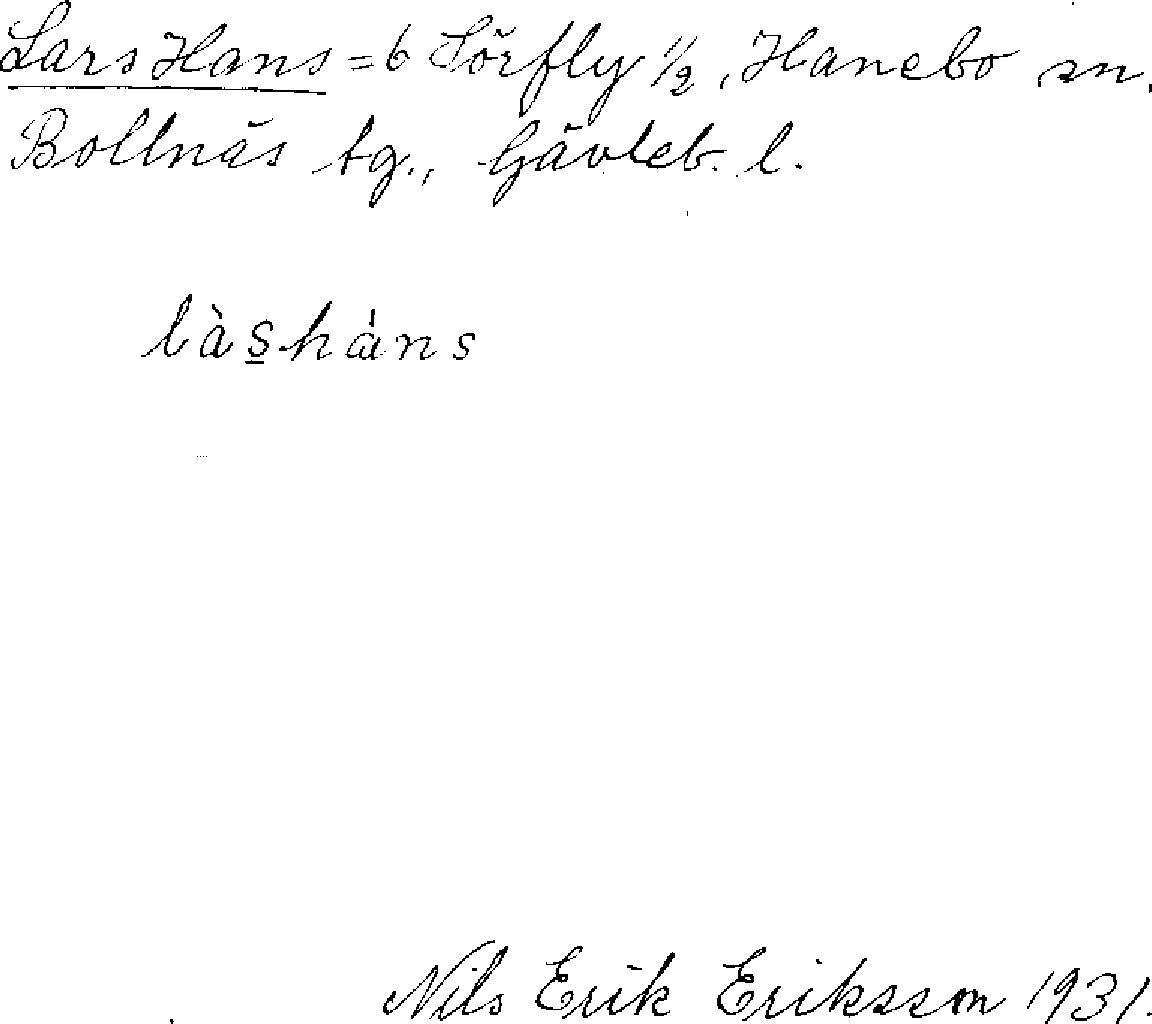 Lars Hans = 6 Sörfly 1/2, Hanebo sn.
Bollnäs tg., Gävleb. l.
làs̲hàns
Nils Erik Eriksson 1931.